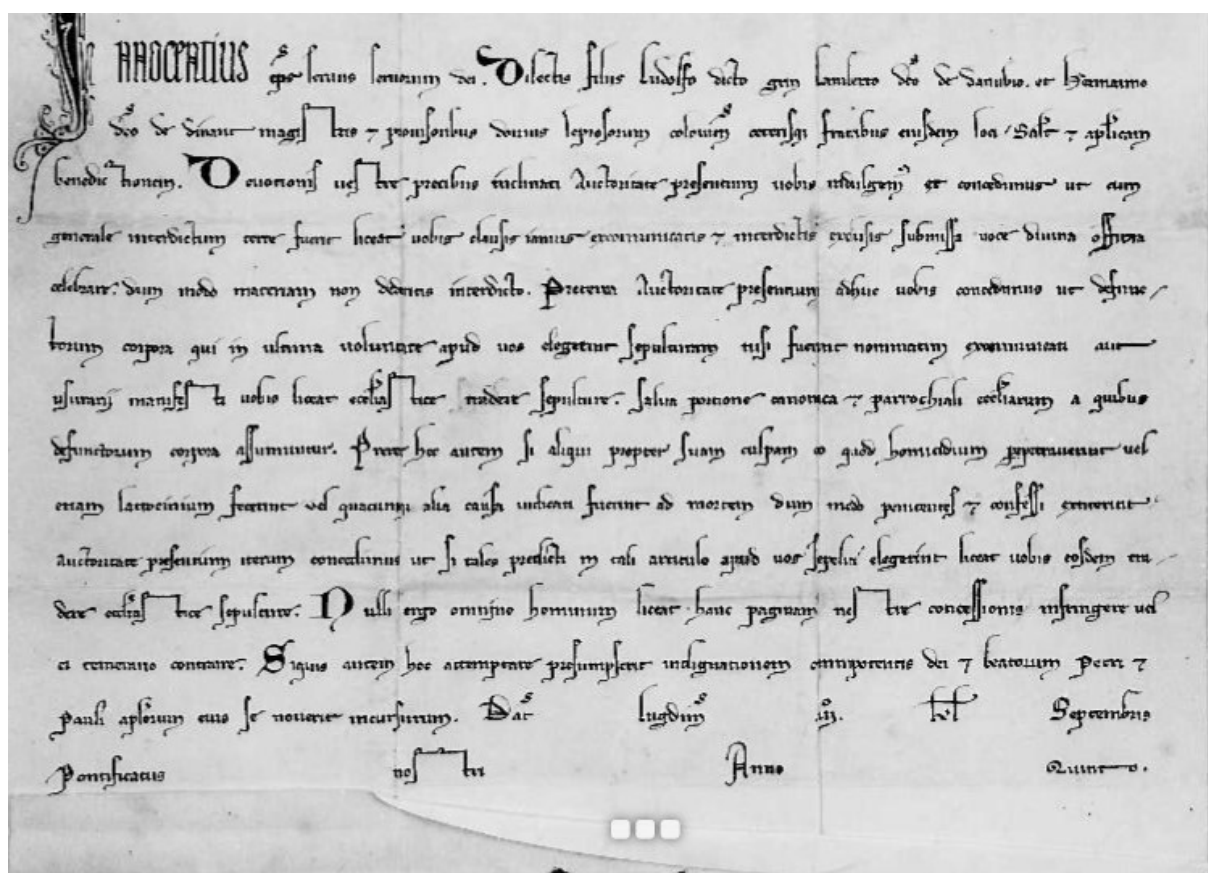 INNOCENTIUS eps servus servorum dei. Dilectis filiis Ludolfo dicto grin Lamberto dco de Danubio. et Hermanno
dco de Dinant magistris ⁊ provisoribus domus leprosorum colonien ceterisqz fratribus eiusdem loci Salt ⁊ aplicam
benedictionem. Devotionis vestre precibus inclinati Auctoritate presentium vobis indulgem et concedimus ut cum
generale interdictum terre fuerit liceat vobis clausis ianuis excommunicatis ⁊ interdictis exclusis submissa voce divina officia
celebrare. dum modo materiam non dederitis interdicto. Preterea Auctoritate presentium adhuc vobis concedimus ut defunc-
torum corpora qui in ultima voluntate apud vos elegerint sepulturam nisi fuerint nominatim excommunicati aut
usurarij manifesti vobis liceat ecclesiastice tradere sepulture. salva portione canonica ⁊ parrochiali eccliarum a quibus
defunctorum corpora assumuntur. Preter hoc autem si aliqui propter suam culpam eo quod homicidium perpetraverint vel
etiam latrocinium fecerint vel quacunqz alia causa iudicati fuerint ad mortem dum modo penitentes ⁊ confessi extiterint
Auctoritate presentium iterum concedimus ut si tales predicti in tali articulo apud vos sepeliri elegerint liceat vobis eosdem tra-
dere eccliastice sepulture. Nulli ergo omnino hominum liceat hanc paginam nostre concessionis infringere vel
ei temerario contraire. Siquis autem hoc attemptare presumpserit indignationem omnipotentis dei ⁊ beatorum Petri ⁊
Pauli aplorum eius se noverit incursurum. Dat Lugdun iij. kl Septembris
Pontificatus nostri Anno Quinto.